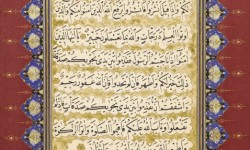 لَكُمْ وَإِذَا قِيلَ انْشُزُوا فَانْشُزُوا يَرْفَعِ اللَّهُ الَّذِينَ آمَنُوا مِنْكُمْ وَالَّذِينَ
أُوتُوا الْعِلْمَ دَرَجَاتٍ وَاللَّهُ بِمَا تَعْمَلُونَ خَبِيرٌ يَا أَيُّهَا الَّذِينَ
آمَنُوا إِذَا نَاجَيْتُمُ الرَّسُولَ فَقَدِّمُوا بَيْنَ يَدَيْ نَجْوٰيكُمْ صَدَقَةً
ذٰلِكَ خَيْرٌ لَكُمْ وَأَطْهَرُ فَإِنْ لَمْ تَجِدُوا فَإِنَّ اللَّهَ غَفُورٌ رَحِيمٌ
ءَأَشْفَقْتُمْ أَنْ تُقَدِّمُوا بَيْنَ يَدَيْ نَجْوٰيكُمْ صَدَقَاتٍ فَإِذْ لَمْ
تَفْعَلُوا وَتَابَ اللَّهُ عَلَيْكُمْ فَأَقِيمُوا الصَّلٰوةَ وَآتُوا الزَّكٰوةَ